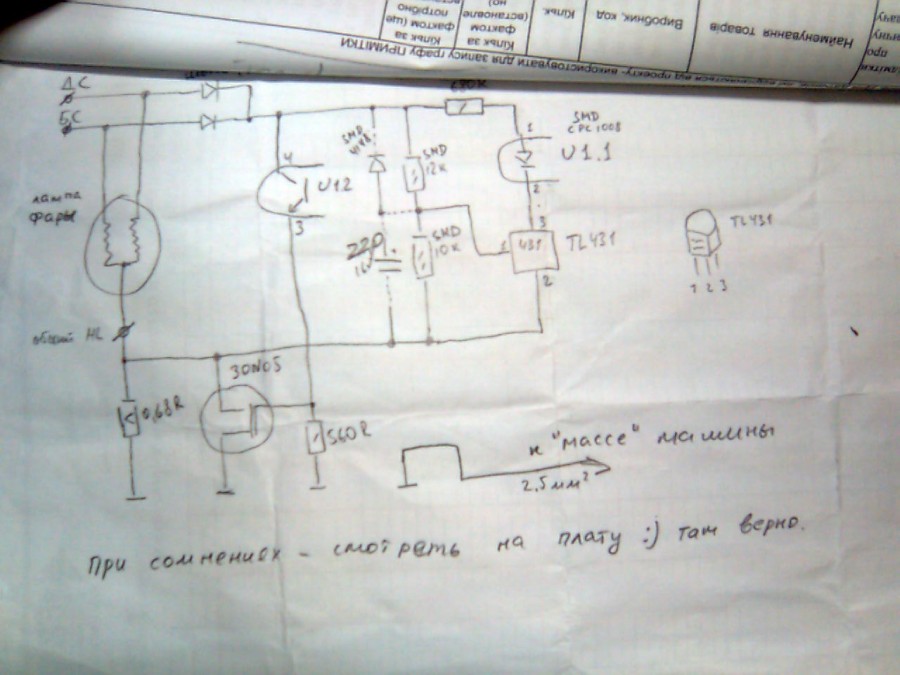 Кільк за
фактом (ще
потрібно
Кільк за
фактом
(встановле
но)
Кільк.
Виробник, код
Найменування товарів
використовувати для запису графу ПРИМІТКИ
ДС
БС
680К
SMD
4148
SMD
12К
SMD
CPC1008
1
U1.1
2
4
U1.2
3
лампа
фары
SMD
10К
220
16v
1
3
431
TL431
2
TL431
1 2 3
общий HL
30N05
0,68R
560R
к "массе" машины
2,5мм²
При сомнениях - смотреть на плату :) там верно.